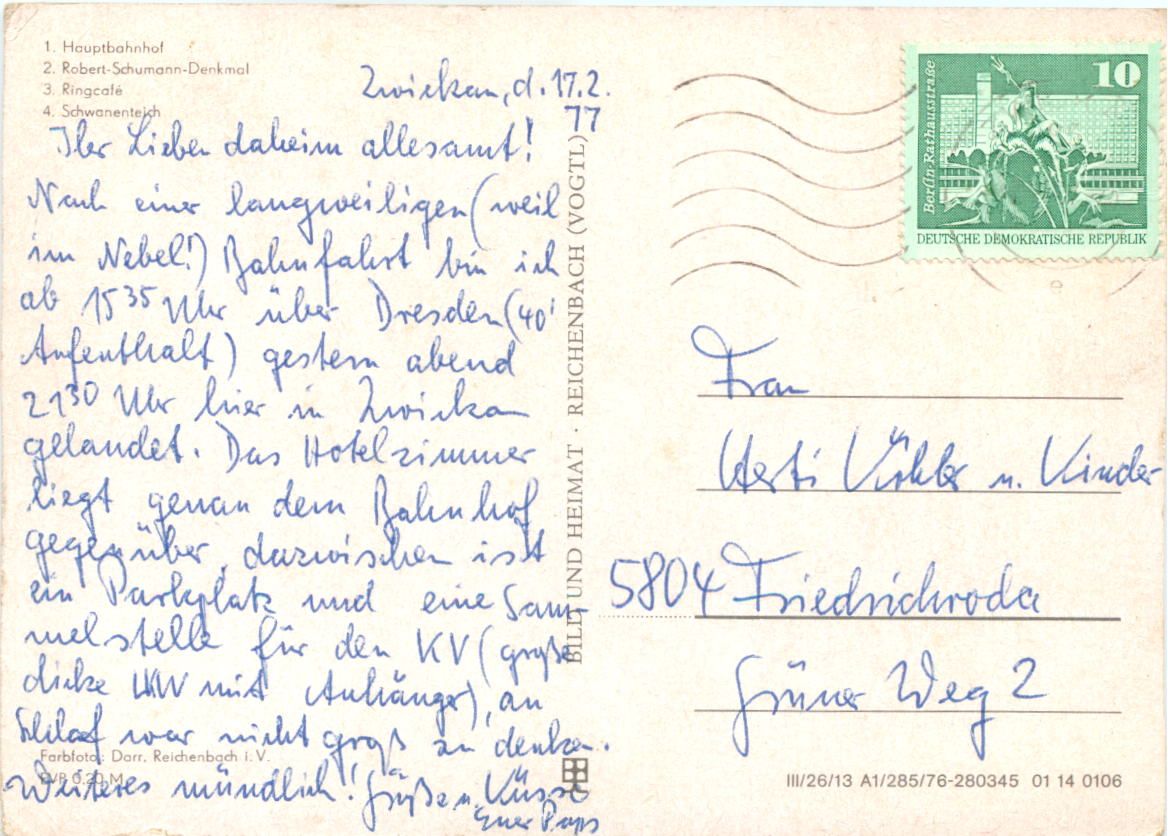 1. Hauptbahnhof
2. Robert-Schumann-Denkmal
3. Ringcafé
4. Schwanenteich
Zwickau, d. 17.2.
77
Ihr Lieben daheim allesamt!
Nach einer langweiligen (weil
im Nebel!) Bahnfahrt bin ich
ab 15³⁵ Uhr über Dresden (40'
Aufenthalt) gestern abend
21³⁰ Uhr hier in Zwickau
gelandet. Das Hotelzimmer
liegt genau dem Bahnhof
gegenüber, dazwischen ist
ein Parkplatz und eine Sam-
melstelle für den KV (große
dicke LKW mit Anhänger), an
Schlaf war nicht groß zu denken.
Weiteres mündlich! Grüße u. Küsse
Euer Paps
Farbfoto: Darr, Reichenbach i. V.
EVP 0,20 M
BILD UND HEIMAT · REICHENBACH (VOGTL)
Berlin-Rathausstraße
10
DEUTSCHE DEMOKRATISCHE REPUBLIK
Frau
Herti Köhler u. Kinder
5804 Friedrichroda
Grüner Weg 2
III/26/13 A1/285/76-280345 01 14 0106